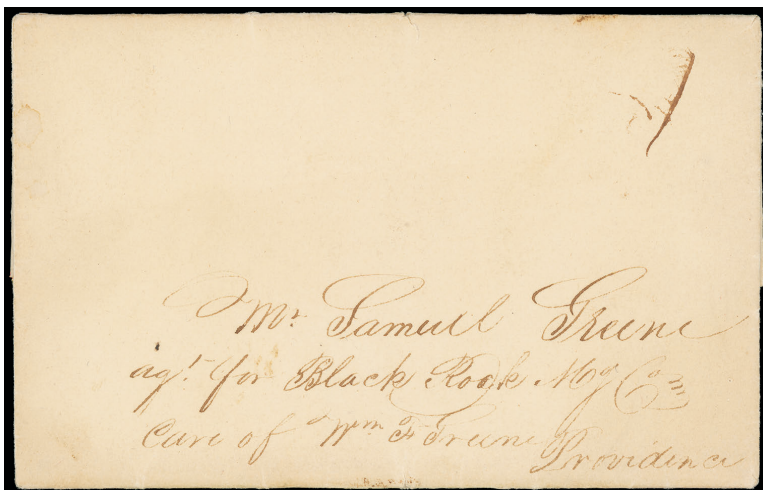 Mr. Samuel Greene
agt. for Black Rock Mg Com
Care of Wm F Greene
Providence